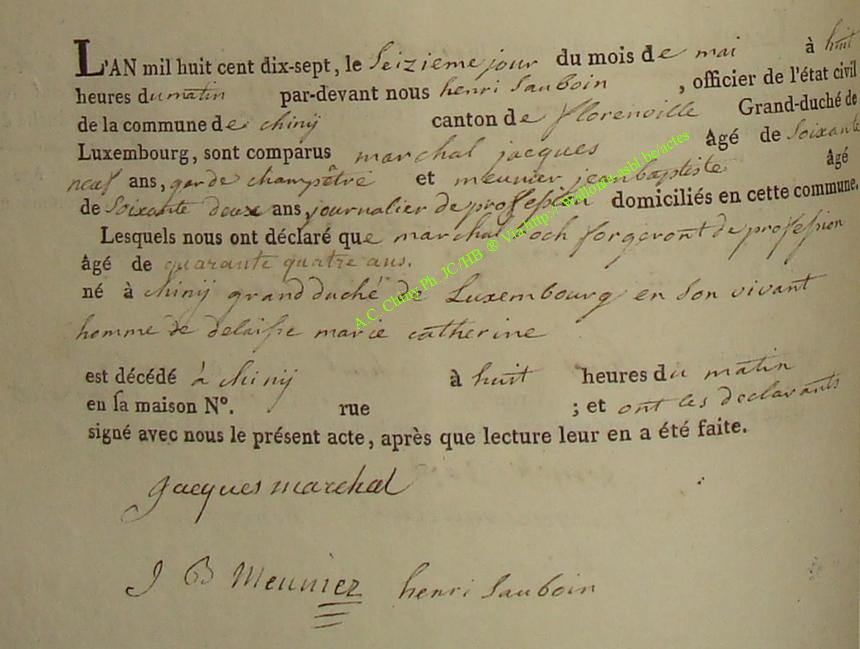 L'AN mil huit cent dix-sept, le Seizieme jour du mois de mai à huit
heures du matin par-devant nous henri Sauboin , officier de l'état civil
de la commune de chinÿ canton de florenville Grand-duché de
Luxembourg, sont comparus marchal jacques âgé de Soixante
neuf ans, garde champêtre et meunier jean baptiste âgé
de Soixante deux ans, journalier de profession domiciliés en cette commune.
Lesquels nous ont déclaré que marchal roch forgeront de profession
âgé de quarante quatre ans.
né à chinÿ grand duché de Luxembourg en son vivant
homme de delaisse marie catherine
est décédé à chinÿ à huit heures du matin
en sa maison N°. rue ; et ont les declarants
signé avec nous le présent acte, après que lecture leur en a été faite.
jacques marchal
J B Meunier henri Sauboin
A.C. Chiny Ph. JC/HB ® Via http://wallonia-asbl.be/actes